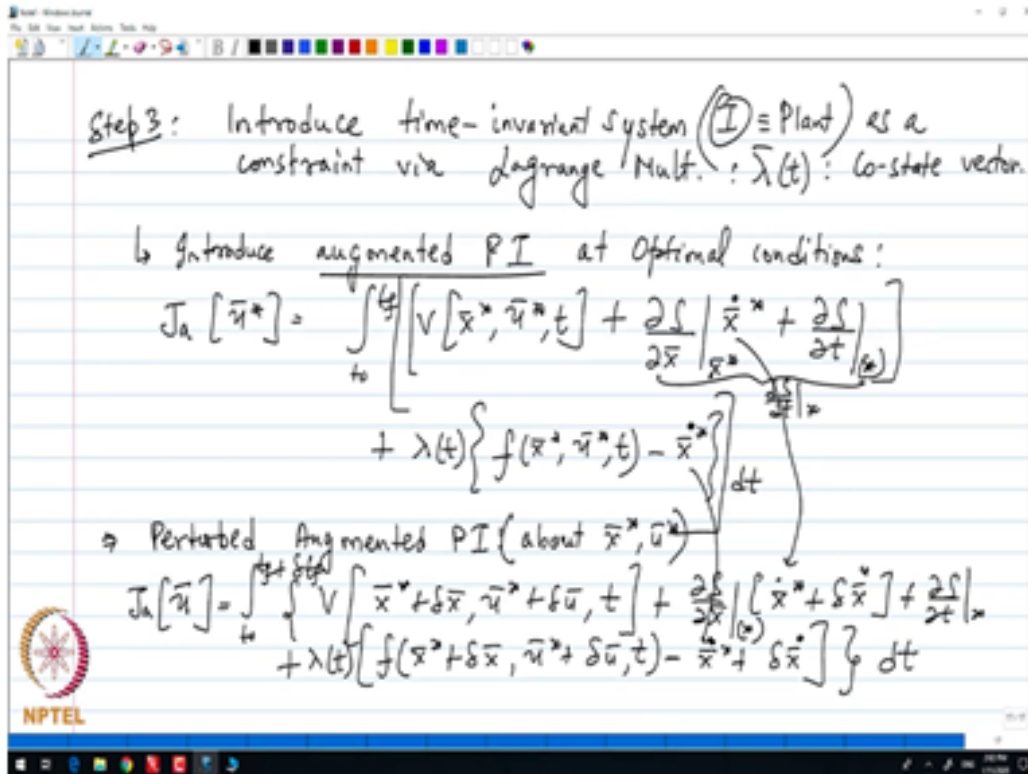 Step 3: Introduce time-invariant system (I ≡ Plant) as a
constraint via Lagrange Mult. : λ̄(t) : Co-state vector.
↳ Introduce augmented PI at Optimal conditions:
Ja [ū*] = ∫_{t0}^{tf} [ [ V[x̄*, ū*, t] + ∂S/∂x̄ |_{x̄*} ẋ̄* + ∂S/∂t |_{(*)} ]
dS/dt |_*
+ λ(t) { f(x̄*, ū*, t) - ẋ̄* } ] dt
⇒ Perturbed Augmented PI (about x̄*, ū*)
Ja [ū] = ∫_{t0}^{tf + δtf} { V[ x̄* + δx̄, ū* + δū, t ] + ∂S/∂x̄ |_{(*)} [ẋ̄* + δẋ̄] + ∂S/∂t |_*
+ λ(t) [ f(x̄* + δx̄, ū* + δū, t) - ẋ̄* + δẋ̄ ] } dt
NPTEL